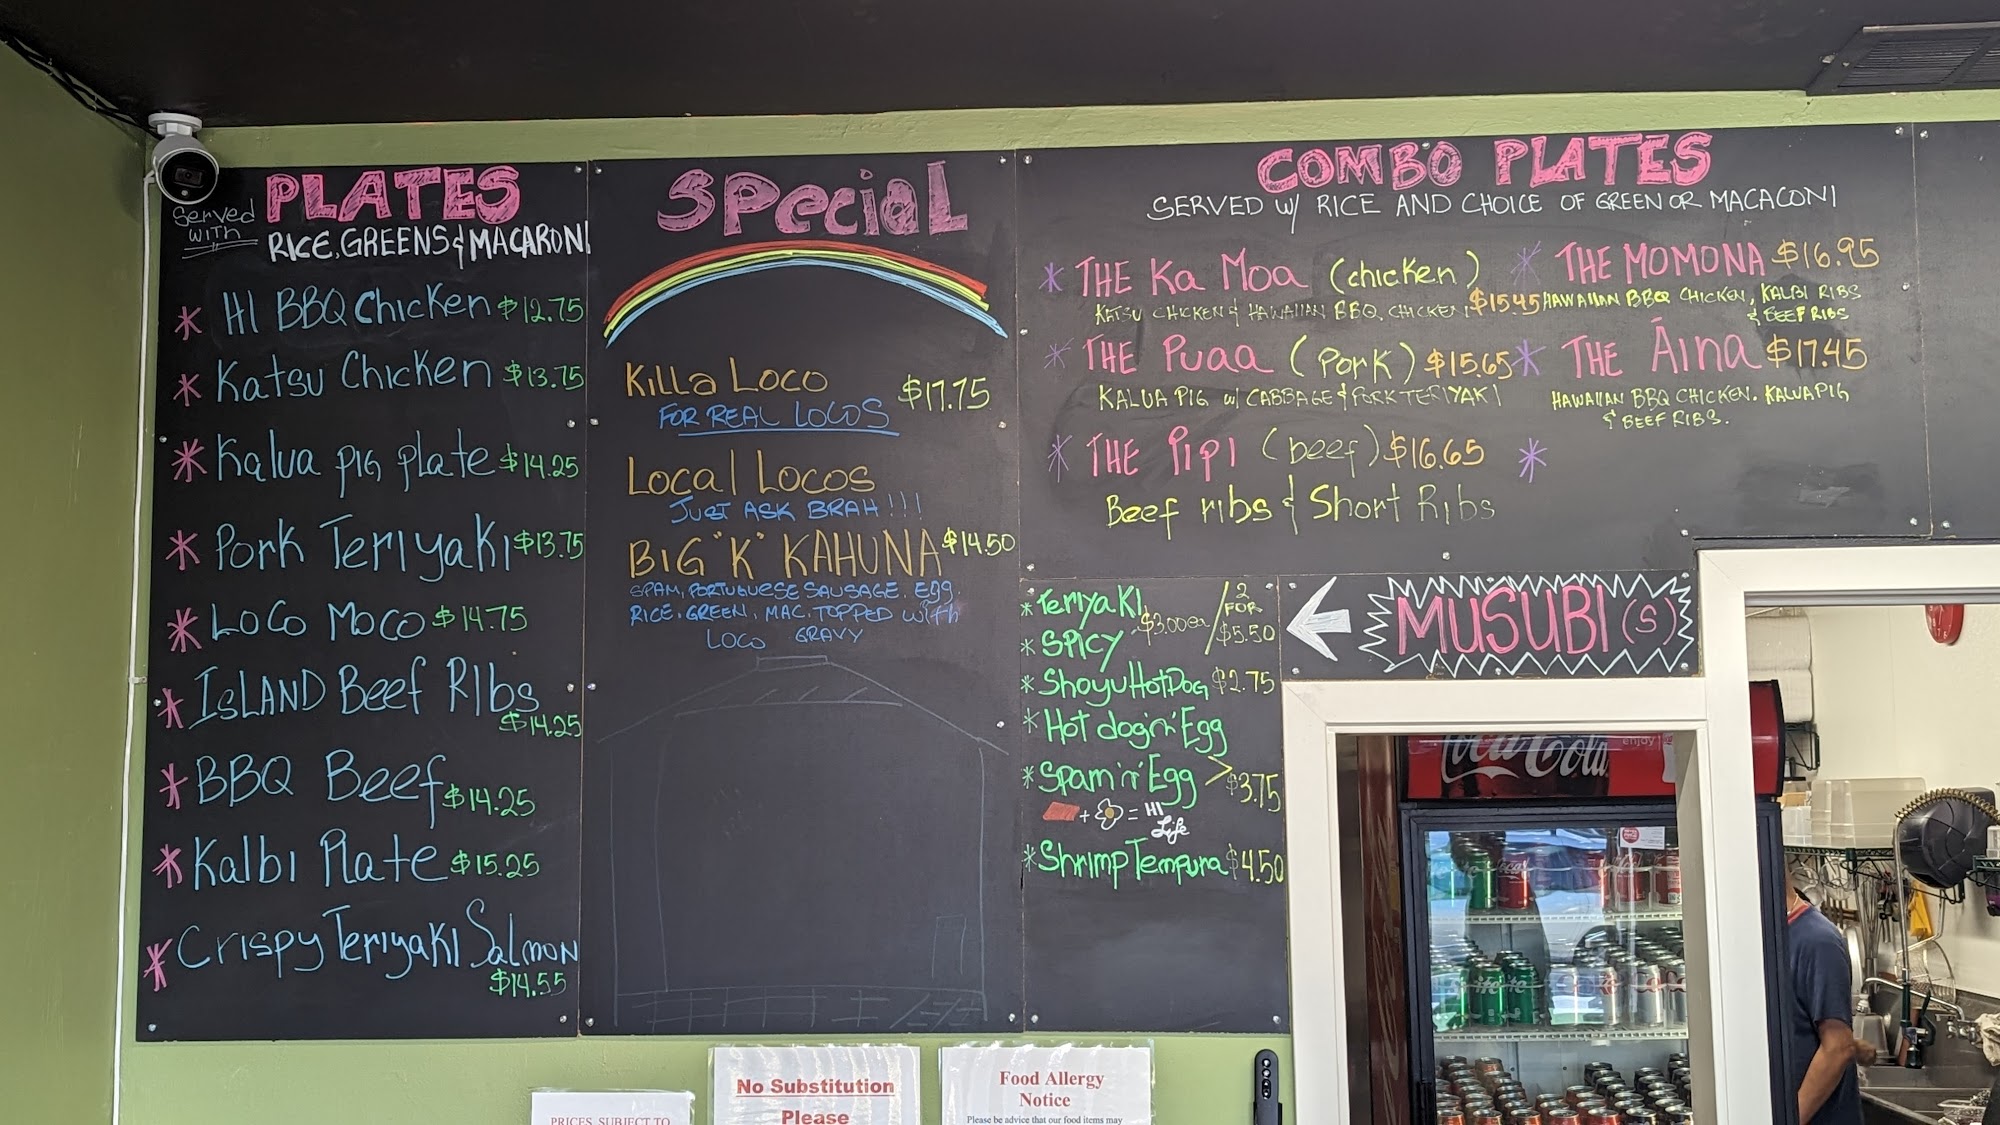 PLATES
Served with
RICE, GREENS & MACARONI
* HI BBQ Chicken $12.75
* Katsu Chicken $13.75
* Kalua Pig Plate $14.25
* Pork Teriyaki $13.75
* Loco Moco $14.75
* Island Beef Ribs
$14.25
* BBQ Beef $14.25
* Kalbi Plate $15.25
* Crispy Teriyaki Salmon
$14.55
Special
Killa Loco $17.75
FOR REAL LOCOS
Local Locos
JUST ASK BRAH!!!
BIG "K" KAHUNA $14.50
SPAM, PORTUGUESE SAUSAGE, Egg
RICE, GREEN, MAC. TOPPED with
LOCO GRAVY
COMBO PLATES
SERVED W/ RICE AND CHOICE OF GREEN OR MACACONI
* THE Ka Moa (chicken)
KATSU CHICKEN & HAWAIIAN BBQ CHICKEN $15.45
* THE Puaa (Pork) $15.65
KALUA PIG W/ CABBAGE & PORK TERIYAKI
* THE Pipi (beef) $16.65
Beef ribs & Short Ribs
* THE MOMONA $16.95
HAWAIIAN BBQ CHICKEN, KALBI RIBS
& BEEF RIBS
* THE Áina $17.45
HAWAIIAN BBQ CHICKEN. KALUA PIG
& BEEF RIBS.
*
MUSUBI(S)
* Teriyaki
* SPICY
$3.00ea / 2 FOR $5.50
* Shoyu Hot Dog $2.75
* Hot dog 'n' Egg
* Spam 'n' Egg > $3.75
+ = HI Life
* Shrimp Tempura $4.50
Coca-Cola
enjoy
Sprite
PRICES SUBJECT TO
No Substitution
Please
Food Allergy
Notice
Please be advice that our food items may